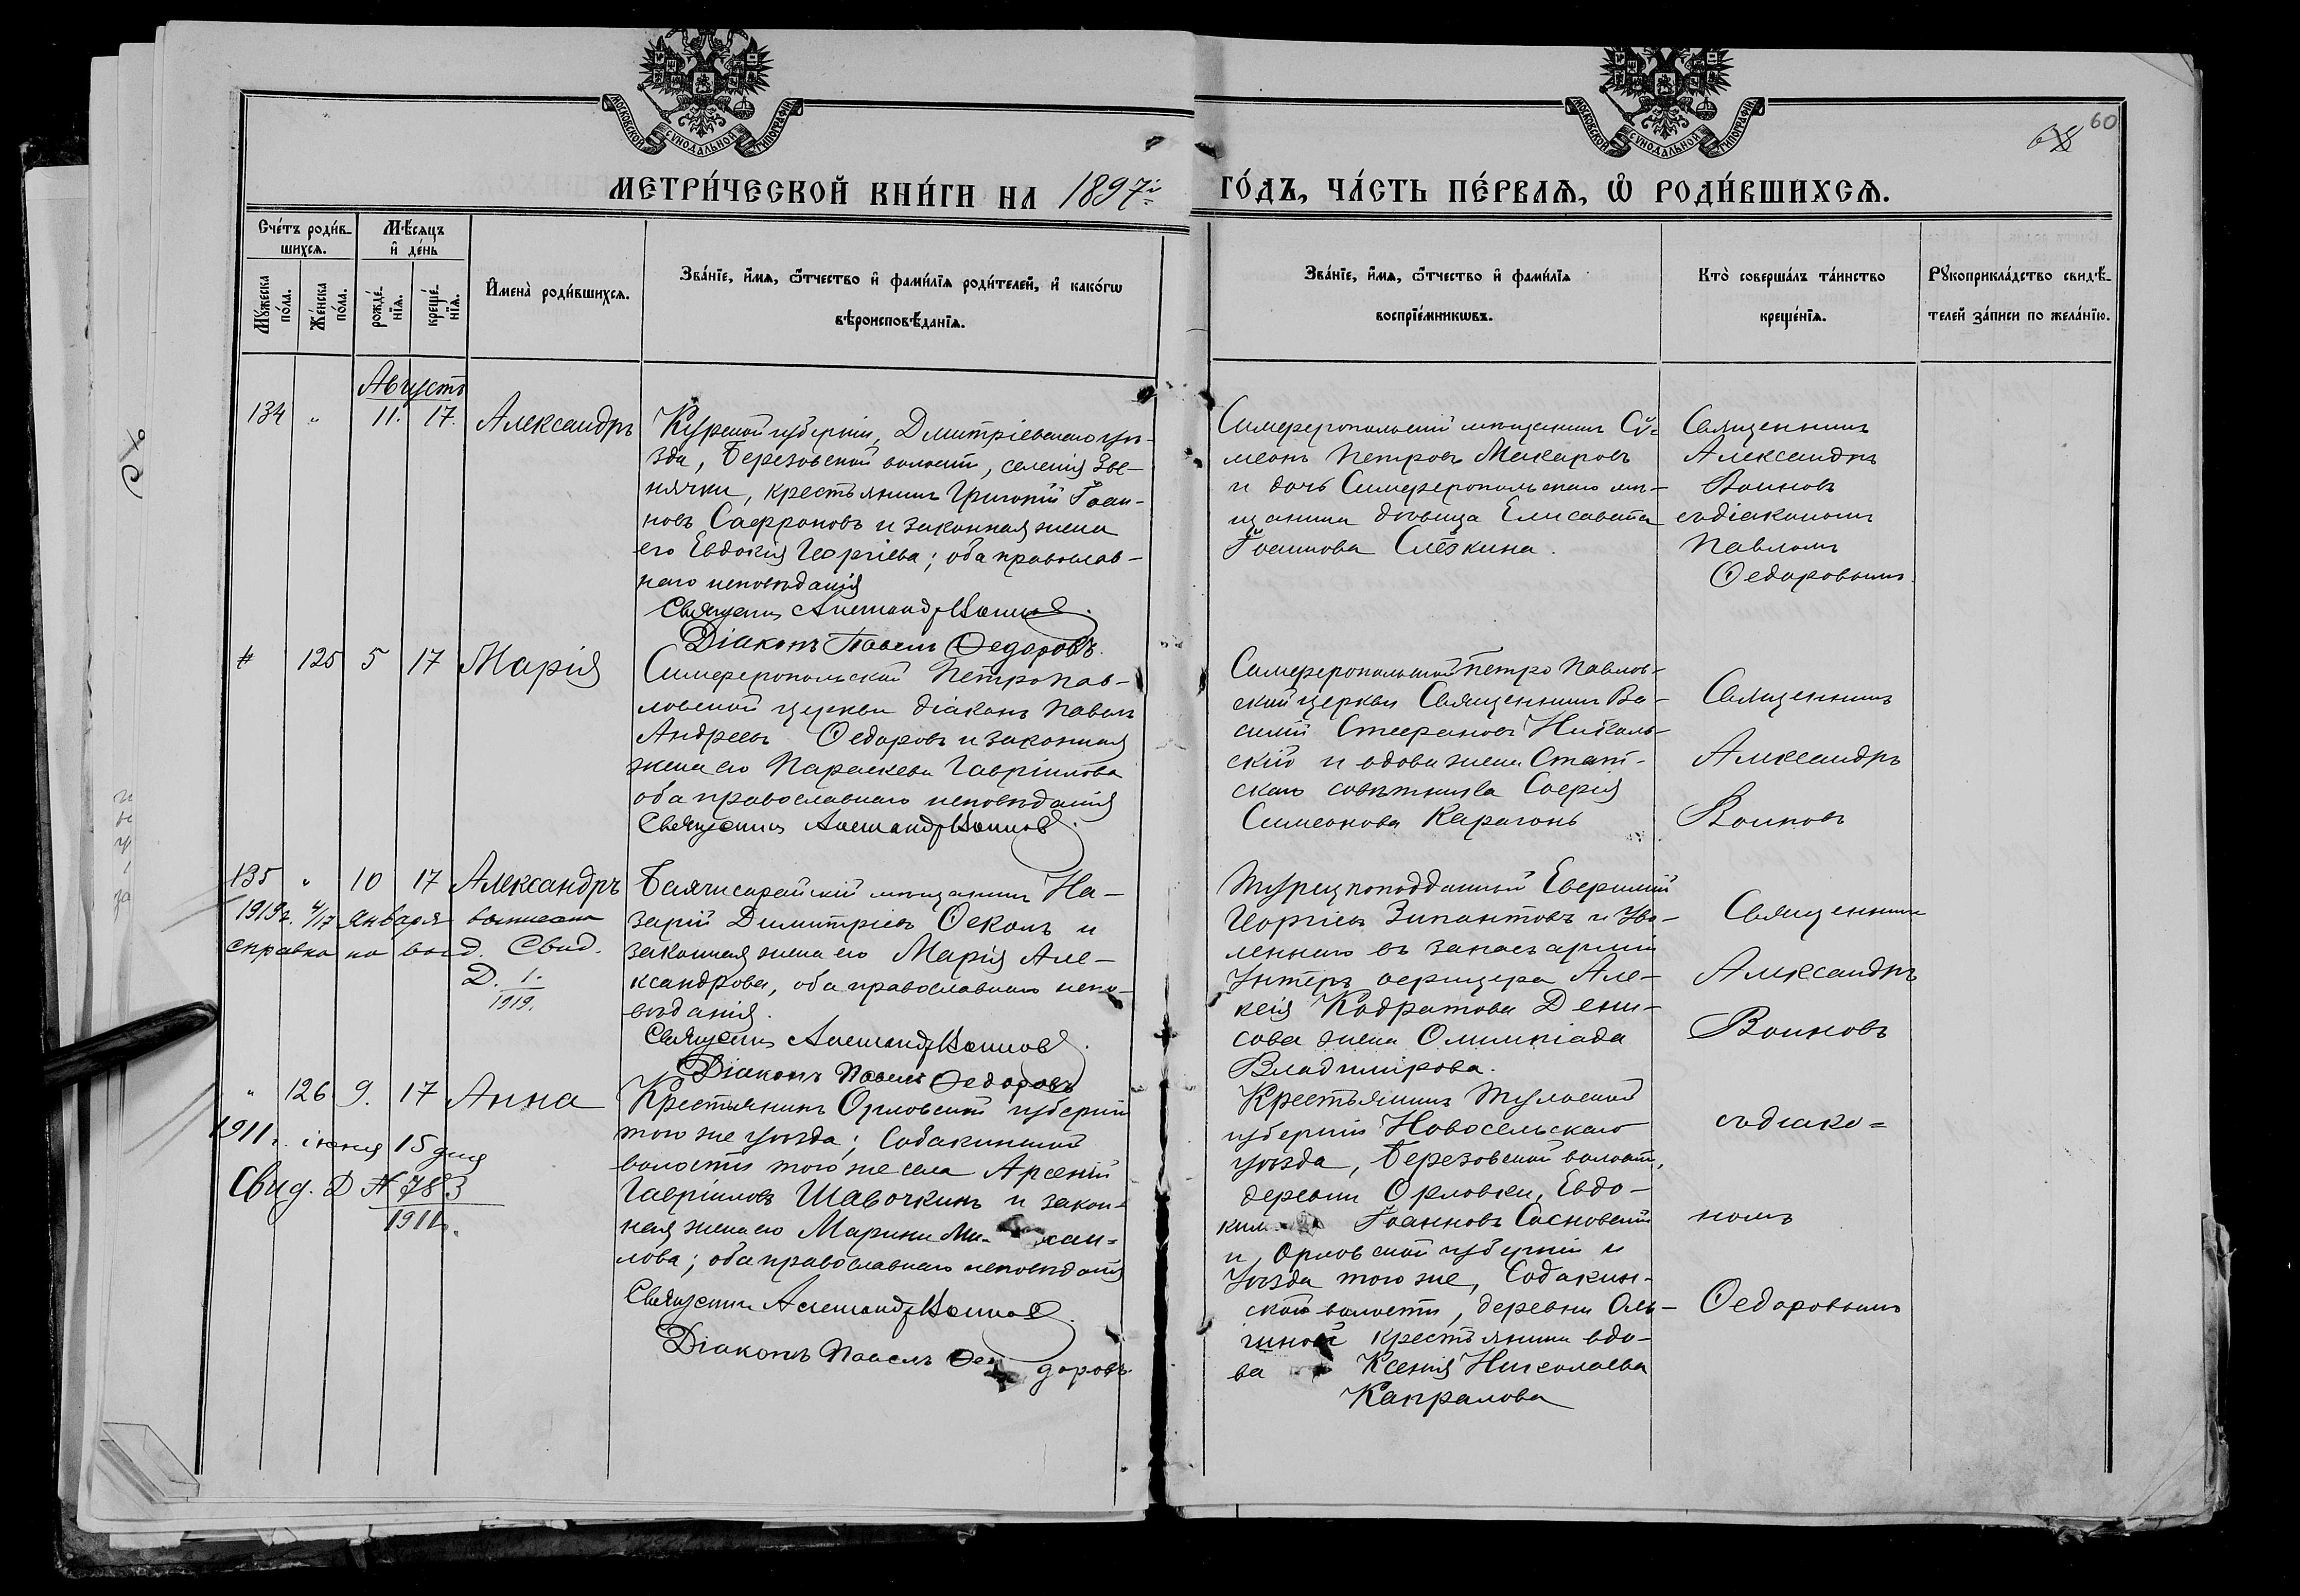 МОСКОВСКОЙ СѴНОДАЛЬНОЙ ТИПОГРАФІИ
МОСКОВСКОЙ СѴНОДАЛЬНОЙ ТИПОГРАФІИ
60
68
МЕТРИ́ЧЕСКОЙ КНИ́ГИ НА 1897й
ГО́ДЪ, ЧА́СТЬ ПЕ́РВАѦ, Ѡ҆ РОДИ́ВШИХСѦ.
Сче́тъ роди́в-
шихсѧ.
Мѣ́сѧцъ
и҆ де́нь
Мꙋ́жеска
по́ла.
Же́нска
по́ла.
рожде́-
нїѧ.
креще́-
нїѧ.
И҆мена̀ роди́вшихсѧ.
Зва́нїе, и҆́мѧ, ѻ҆́тчество и҆ фами́лїѧ роди́телей, и҆ како́гѡ
вѣроисповѣ́данїѧ.
Зва́нїе, и҆́мѧ, ѻ҆́тчество и҆ фами́лїѧ
воспрїе́мникѡвъ.
Кто̀ соверша́лъ та́инство
креще́нїѧ.
Рꙋкоприкла́дство свидѣ́-
телей за́писи по жела́нїю.
Августъ
134 " 11. 17. Александръ
Курской губерніи, Дмитріевскаго уѣ-
зда, Березовской волости, селенія Зве-
нячки, крестьянинъ Григорій Іоан-
новъ Сафроновъ и законная жена
его Евдокія Георгіева; оба православ-
наго исповѣданія
Священникъ Александръ Воиновъ.
Діаконъ Павелъ Ѳедоровъ.
Симферопольскій мѣщанинъ Си-
меонъ Петровъ Макаровъ
и дочь Симферопольскаго мѣ-
щанина дѣвица Елисавета
Іоаннова Слёзкина.
Священникъ
Александръ
Воиновъ
съ діакономъ
Павломъ
Ѳедоровымъ.
125 5 17 Марія
Симферопольской Петропав-
ловской церкви діаконъ Павелъ
Андреевъ Ѳедоровъ и законная
жена его Параскева Гавріилова
оба православнаго исповѣданія
Священникъ Александръ Воиновъ.
Симферопольской Петро Павлов-
ской церкви Священникъ Ва-
силій Стефановъ Николь-
скій и вдова жена Стат-
скаго совѣтника Софія
Симеонова Карагонъ
Священникъ
Александръ
Воиновъ
135 " 10 17 Александръ
1919г. 4/17 января выписана
справка на выд. Свид.
Д. 1.
1919.
Бахчисарайскій мѣщанинъ На-
зарій Димитріевъ Ѳеколъ и
законная жена его Марія Але-
ксандрова, оба православнаго испо-
вѣданія.
Священникъ Александръ Воиновъ.
Діаконъ Павелъ Ѳедоровъ
Турецкоподданный Евфимій
Георгіевъ Зипантовъ и Уво-
леннаго въ запасъ арміи
Унтеръ офицера Але-
ксія Кодратова Дени-
сова жена Олимпіада
Владимірова.
Священникъ
Александръ
Воиновъ
" 126 9. 17 Анна
1911г. іюня 15 дня
Свид. Д № 783
1911г.
Крестьянинъ Орловской губерніи
того же уѣзда; Собакинской
волости того же села Арсеній
Гавріиловъ Шавочкинъ и закон-
ная жена его Марина Ми- хаи-
лова; оба православнаго исповѣданія
Священникъ Александръ Воиновъ.
Діаконъ Павелъ Ѳе доровъ
Крестьянинъ Тульской
губерніи Новосельскаго
уѣзда, Березовской волости,
деревни Орловки, Евдо-
кимъ Іоанновъ Сосновскій
и Орловской губерніи и
Уѣзда того же, Собакин-
ской волости, деревни Оль-
гиной крестьянина вдо-
ва Ксенія Николаева
Капралова
съ діако=
номъ
Ѳедоровымъ